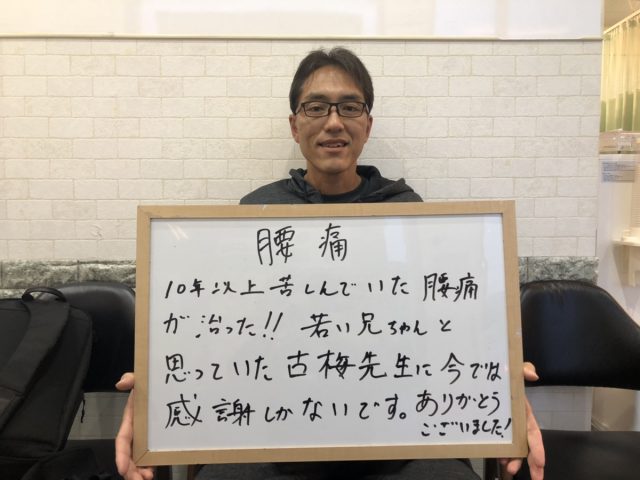 腰痛
10年以上苦しんでいた腰痛
が治った!! 若い兄ちゃんと
思っていた古梅先生に今では
感謝しかないです。ありがとう
ございました!